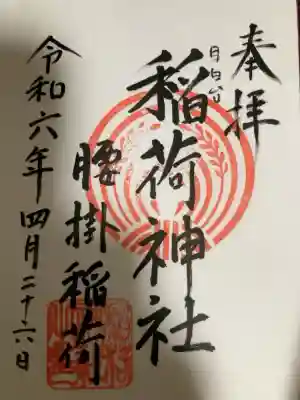 奉拝
目白台
稲荷神社
腰掛稲荷
令和六年四月二十六日